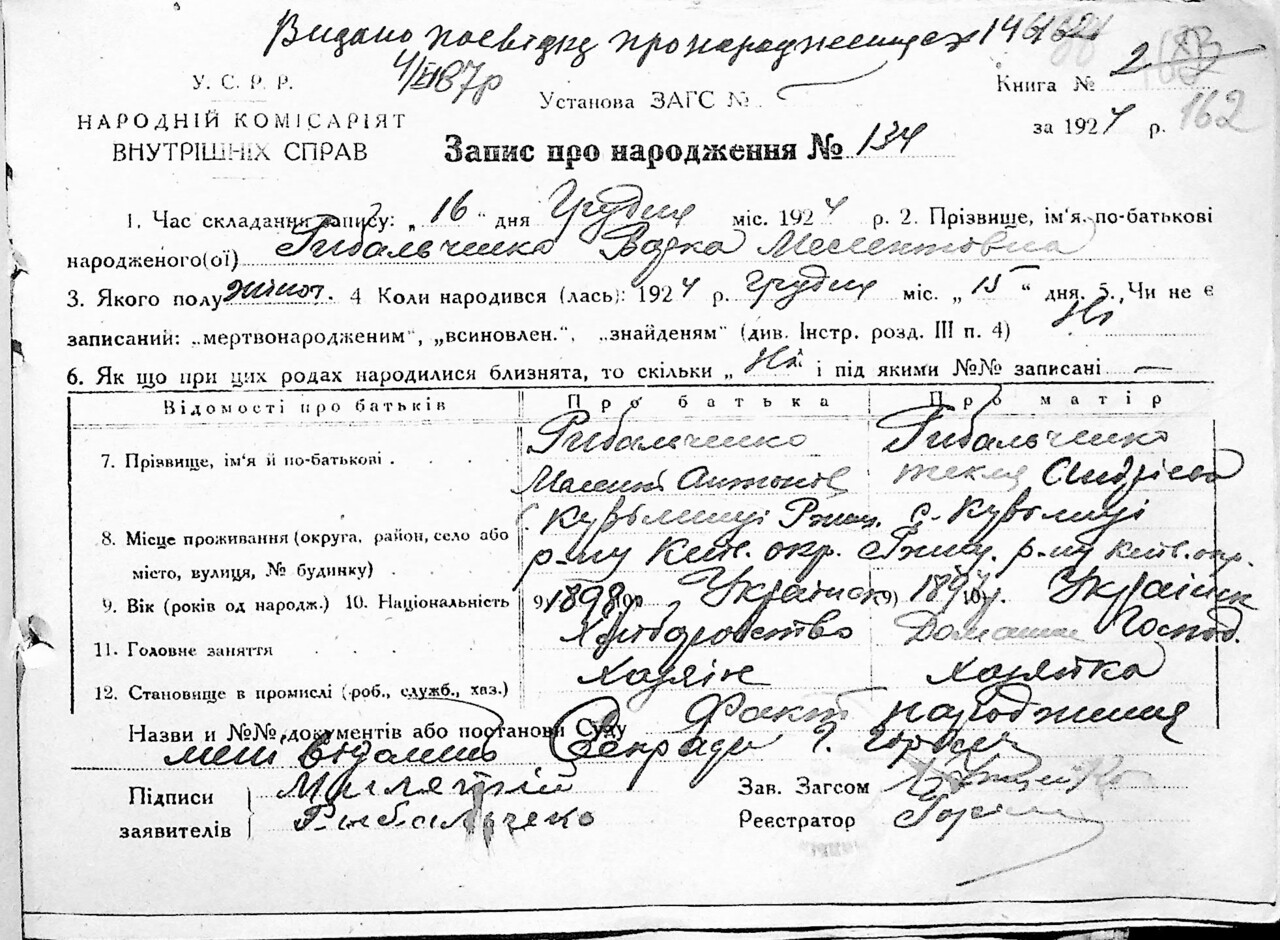 Видано посвідку про народження 146162
4/III 87р
У. С. Р. Р.
НАРОДНІЙ КОМІСАРІЯТ
ВНУТРІШНІХ СПРАВ
Установа ЗАГС №
Книга № 2
за 1924 р. 162
Запис про народження № 134
1. Час складання запису: „16“ дня Грудня міс. 1924 р. 2. Прізвище, ім'я, по-батькові
народженого(ої) Рибальченко Варка Мелентовна
3. Якого полу жіноч. 4 Коли народився (лась): 1924 р. Грудня міс. „15“ дня. 5. Чи не є
записаний: „мертвонародженим“, „всиновлен.“, „знайденям“ (див. Інстр. розд. III п. 4) Ні
6. Як що при цих родах народилися близнята, то скільки „Ні і під якими №№ записані —
Відомості про батьків Про батька Про матір
7. Прізвище, ім'я й по-батькові . Рибальченко Рибальченко
Антонів текля Андрієва
8. Місце проживання (округа, район, село або місто, вулиця, № будинку) с. Ржищ. с.
р-ну Київ. окр. Ржищ. р-ну Київ. окр.
9. Вік (років од народж.) 10. Національність 9) 1898 10) Українец 9) 1897 10) Україінк
11. Головне заняття Хліборобство Домашнє Господ.
12. Становище в промислі (роб., служб., хаз.) Хазяін Хазяйка
Назви и №№ документів або постанови Суду Факт народження
мені відомий Секрад
Підписи заявителів Рибальчеко
Зав. Загсом
Реєстратор